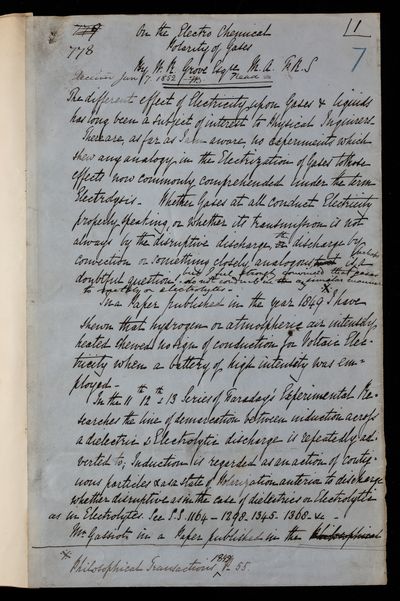 779 On the Electro Chemical 1
778 Polarity of Gases 7
By W. R. Grove Esqre M.A. F.R.S
Received Jany 7. 1852 Read
The different effect of Electricity upon Gases & liquids
has long been a subject of interest to Physical Inquirers.
There are, as far as I am aware, no experiments which
shew any analogy in the Electrization of Gases to those
effects now commonly comprehended under the term
Electrolysis - Whether Gases at all conduct Electricity
properly speaking or whether its transmission is not
always by the disruptive discharge, the discharge by
convection or something closely analogous is perhaps a
doubtful question, but I feel strongly convinced that gases
do not conduct in a similar manner
to metals or electrolytes - *
In a Paper published in the year 1849 I have
shewn that hydrogen or atmospheric air intensely
heated shewed no sign of conduction for Voltaic Elec-
tricity when a battery of high intensity was em-
ployed -
In the 11th 12th & 13 Series of Faraday's Experimental Re-
searches the line of demarcation between induction across
a dielectric & Electrolytic discharge is repeatedly ad-
verted to; Induction is regarded as an action of contig-
uous particles & as a state of Polarization anterior to discharge
whether disruptive as in the case of dielectrics or Electrolytic
as in Electrolytes. See S.S. 1164 - 1298 - 1345 - 1368 - &c -
Mr Gassiot in a Paper published in the Philosophical
* Philosophical Transactions 1849 p. 55.